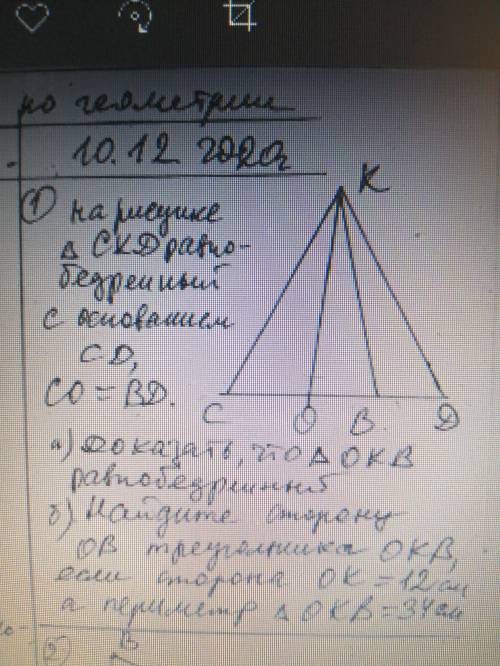 по геометрии
10.12 2020г
① на рисунке
Δ СКД равно-
бедренный
с основанием
СD,
CO = BD.
К
С О В Д
а) Доказать, что Δ ОКВ
равнобедренный
б) Найдите сторону
ОВ треугольника ОКВ,
если сторона ОК = 12 см
а периметр Δ ОКВ = 34 см
②
В